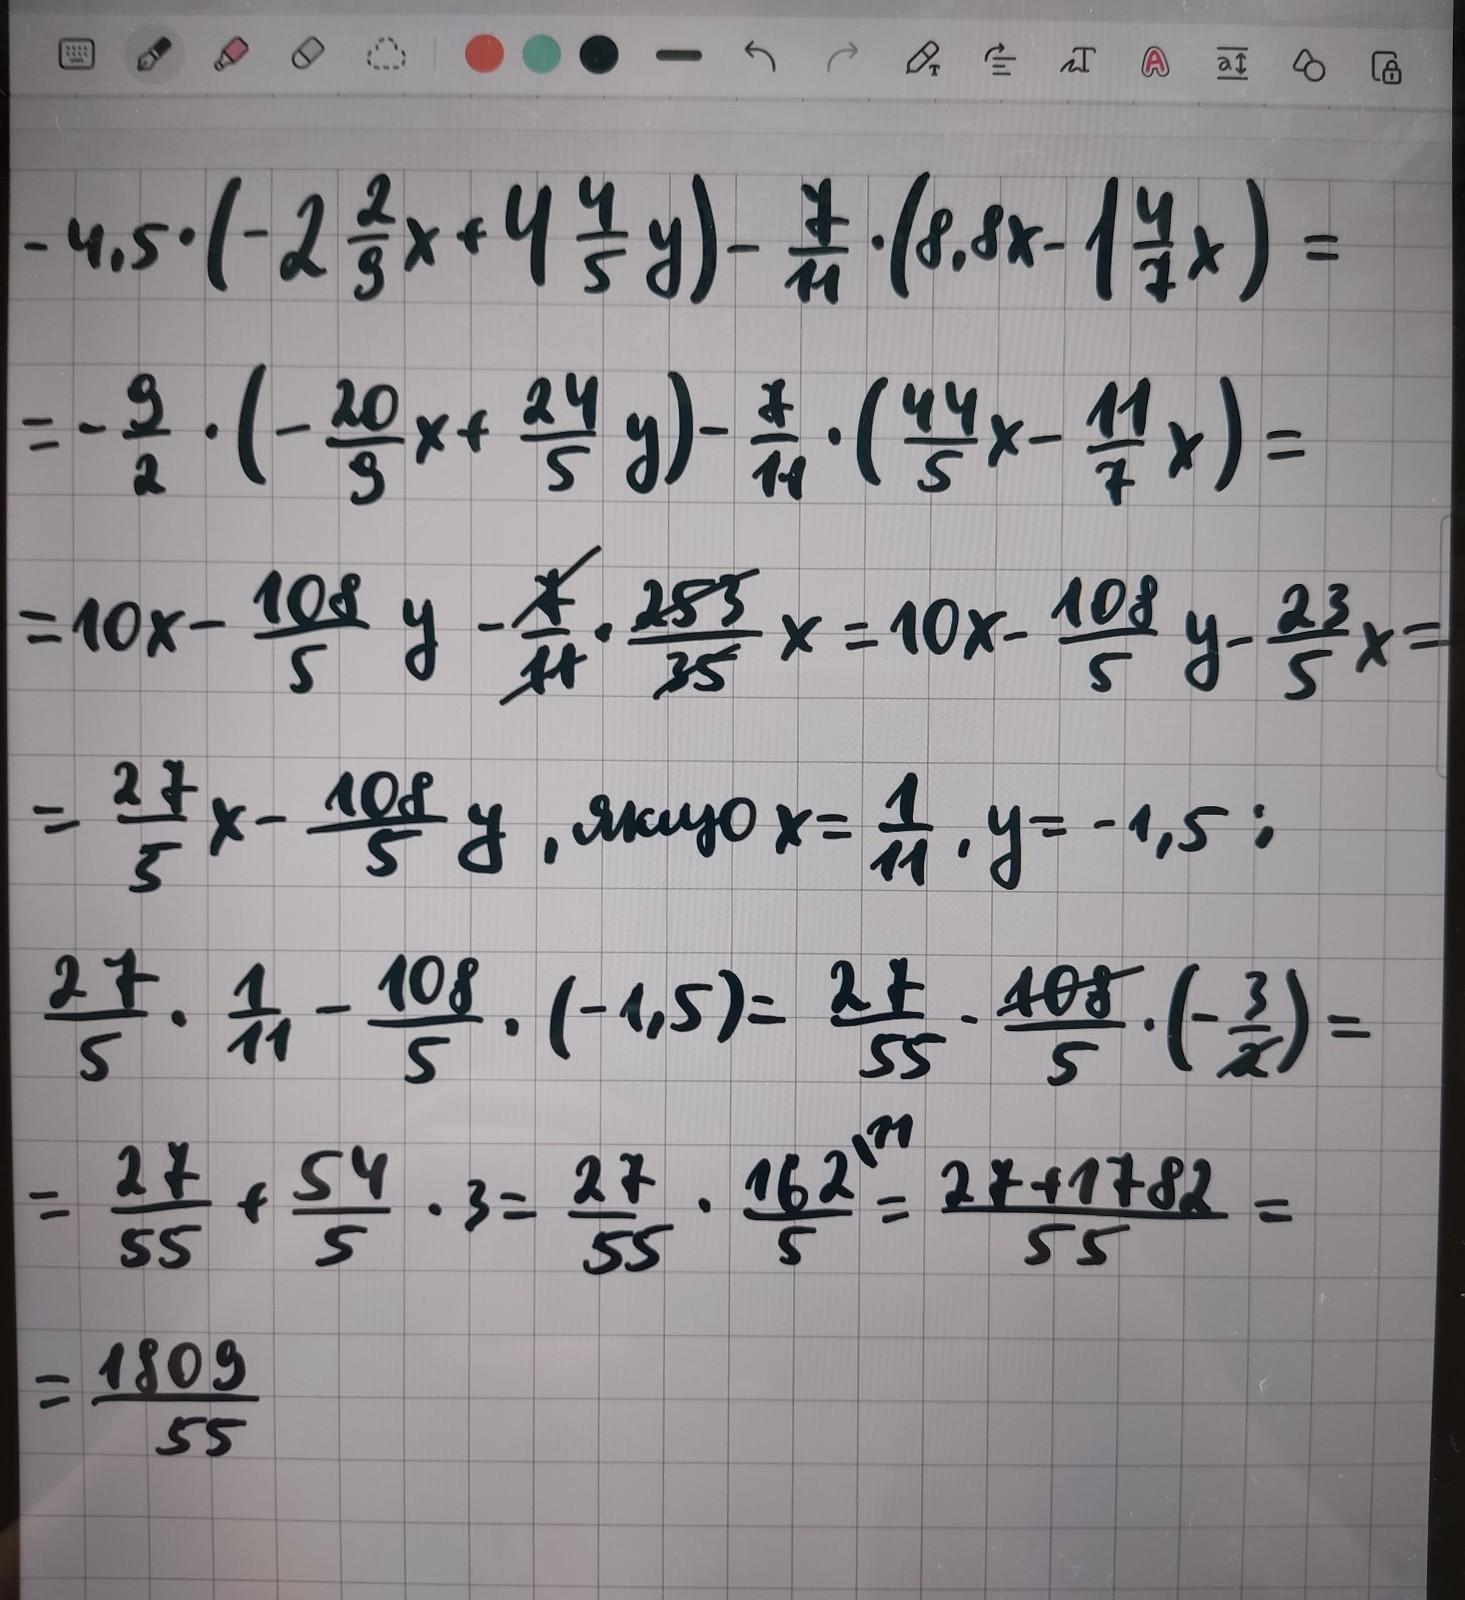 -4,5·(-2 2/9 x + 4 4/5 y) - 7/11 · (8,8x - 1 4/7 x) =
= - 9/2 · (- 20/9 x + 24/5 y) - 7/11 · (44/5 x - 11/7 x) =
= 10x - 108/5 y - 7/11 · 253/35 x = 10x - 108/5 y - 23/5 x =
= 27/5 x - 108/5 y , якщо x = 1/11 . y = -1,5 ;
27/5 · 1/11 - 108/5 · (-1,5) = 27/55 - 108/5 · (- 3/2) =
= 27/55 + 54/5 · 3 = 27/55 · 162/5 \11 = 27+1782/55 =
= 1809/55